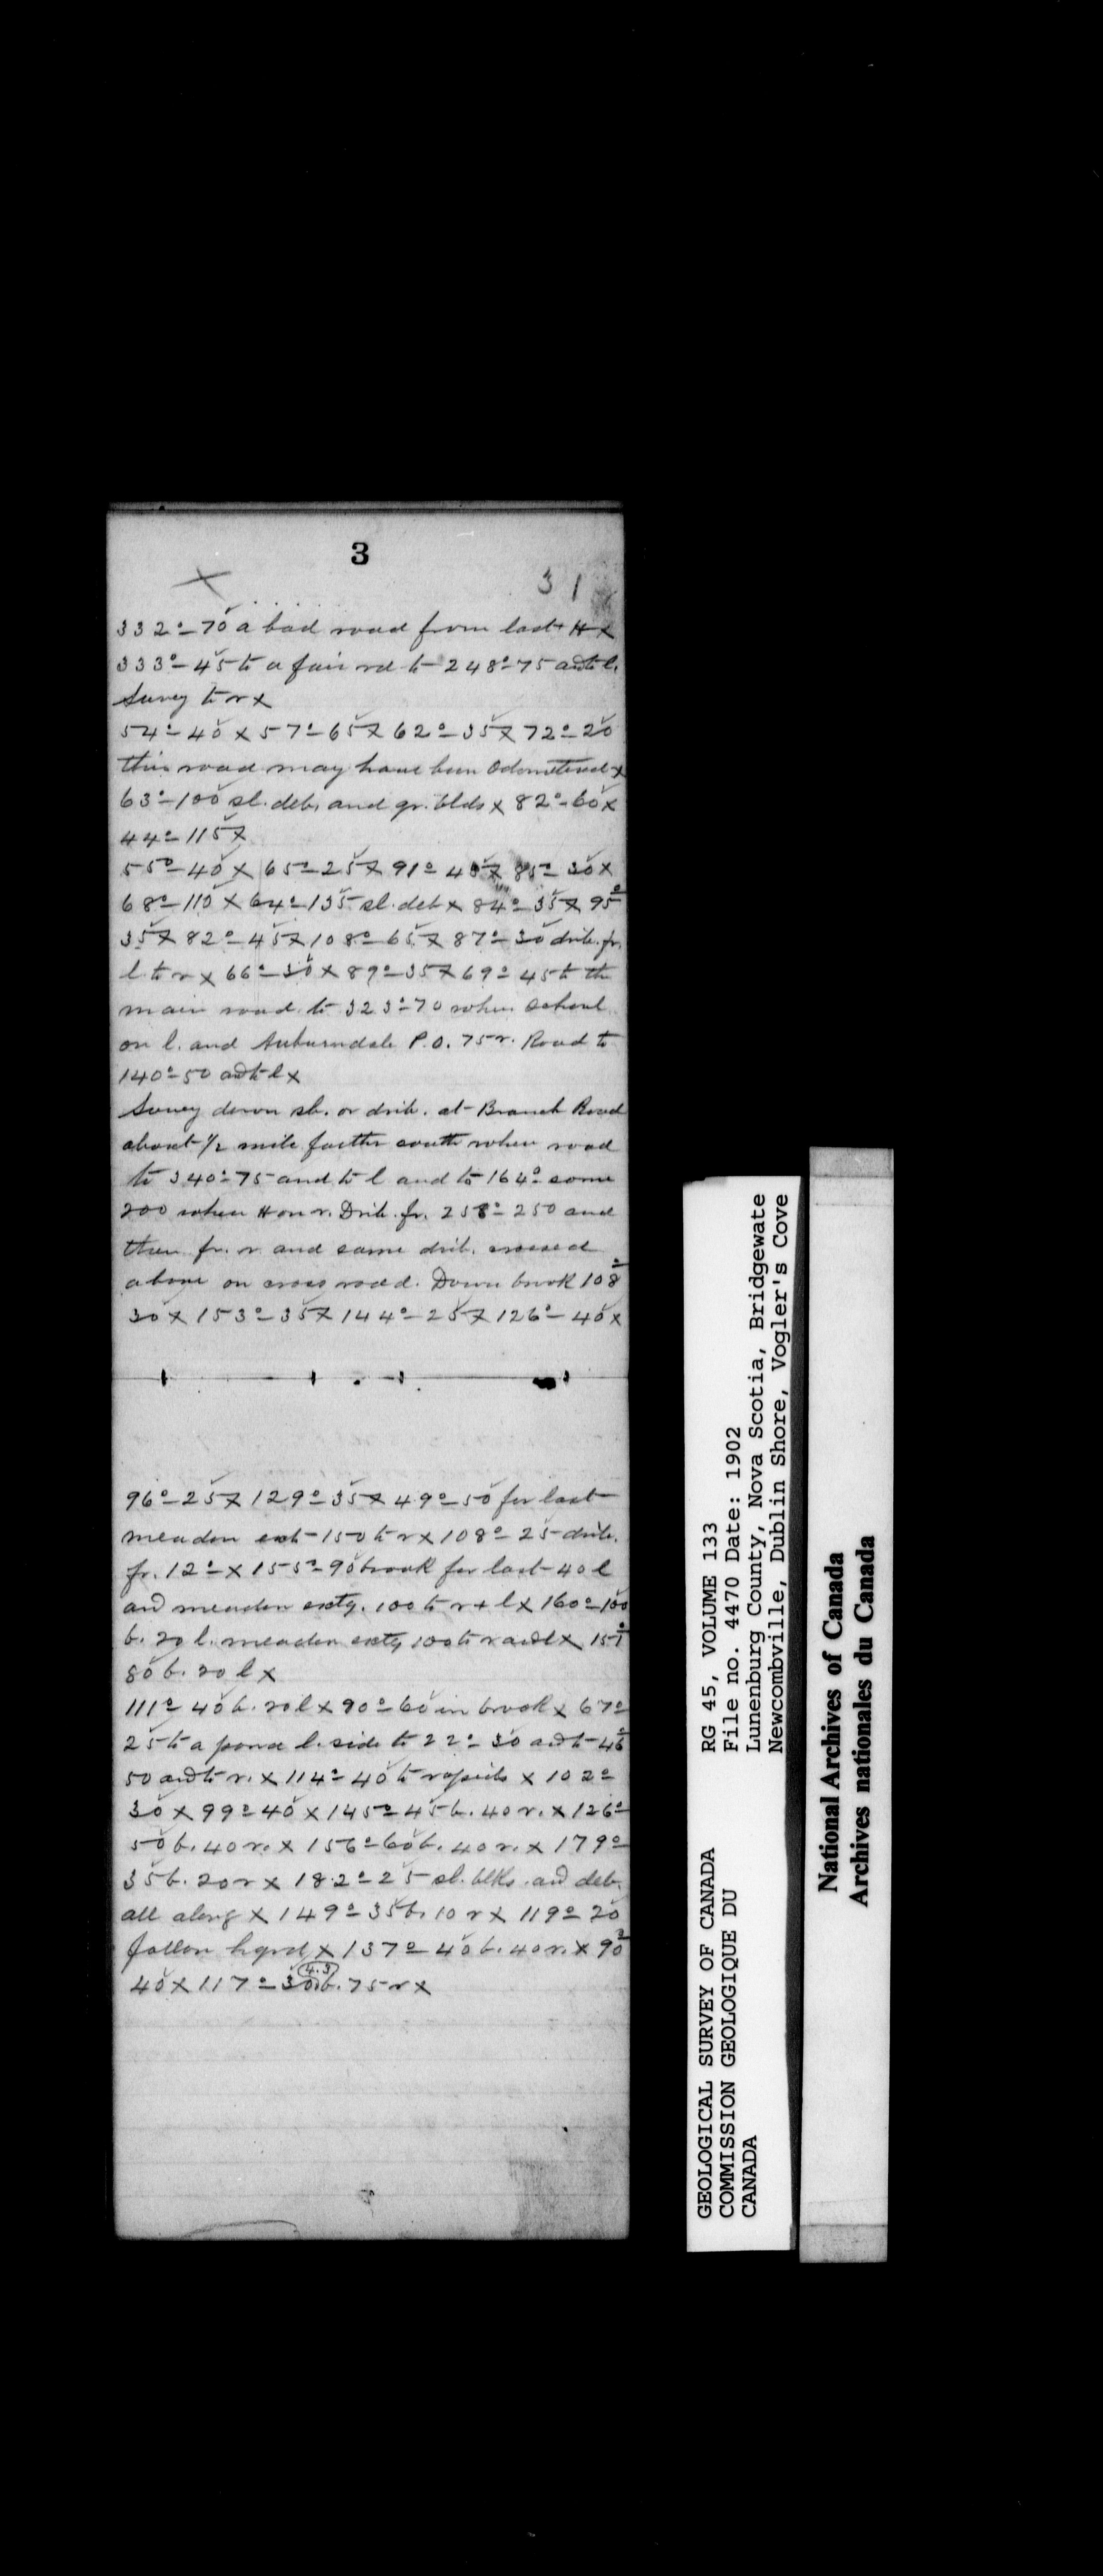 3
31
332°-70 a bad road from last H x
333°-45 to a fair rd to 248°-75 and to l.
Survey to r x
54°-40 x 57°-65 x 62°-35 x 72°-20
this road may have been Odometered x
63°-100 sl. deb. and gr. blds x 82°-60 x
44°-115 x
55°-40 x 65°-25 x 91°-45 x 85°-30 x
68°-110 x 64°-135 sl. deb x 84°-35 x 95°
35 x 82°-45 x 108°-65 x 87°-30 drib. fr.
l to r x 66°-30 x 89°-35 x 69°-45 to the
main road to 323°-70 when school
on l. and Auburndale P.O. 75 r. Road to
140°-50 and to l x
Survey down sb. or drib. at Branch Road
about 1/2 mile further south when road
to 340°-75 and to l and to 164° some
200 when H on r. Drib. fr. 258°-250 and
then fr. r. and same drib. crossed
above on cross road. Down brook 108°
30 x 153°-35 x 144°-25 x 126°-40 x
96°-25 x 129°-35 x 49°-50 for last
meadow ext 150 to r x 108°-25 drib.
fr. 12° x 155°-90 brook for last 40 l
and meadow extg. 100 to r + l x 160°-100
b. 20 l. meadow extg 100 to r and l x 151°
80 b. 20 l x
111°-40 b. 20 l x 90°-60 in brook x 67°
25 to a pond l. side to 22°-30 and to 46°
50 and to r. x 114°-40 to rapids x 102°
30 x 99°-40 x 145°-45 b. 40 r. x 126°
50 b. 40 r. x 156°-60 b. 40 r. x 179°
35 b. 20 r x 182°-25 sl. blks. and deb.
all along x 149°-35 b. 10 r x 119°-20
follow x 137°-40 b. 40 r. x 90°
4.3
40 x 117°-30 b. 75 r x
GEOLOGICAL SURVEY OF CANADA
COMMISSION GEOLOGIQUE DU
CANADA
RG 45, VOLUME 133
File no. 4470 Date: 1902
Lunenburg County, Nova Scotia, Bridgewate
Newcombville, Dublin Shore, Vogler's Cove
National Archives of Canada
Archives nationales du Canada